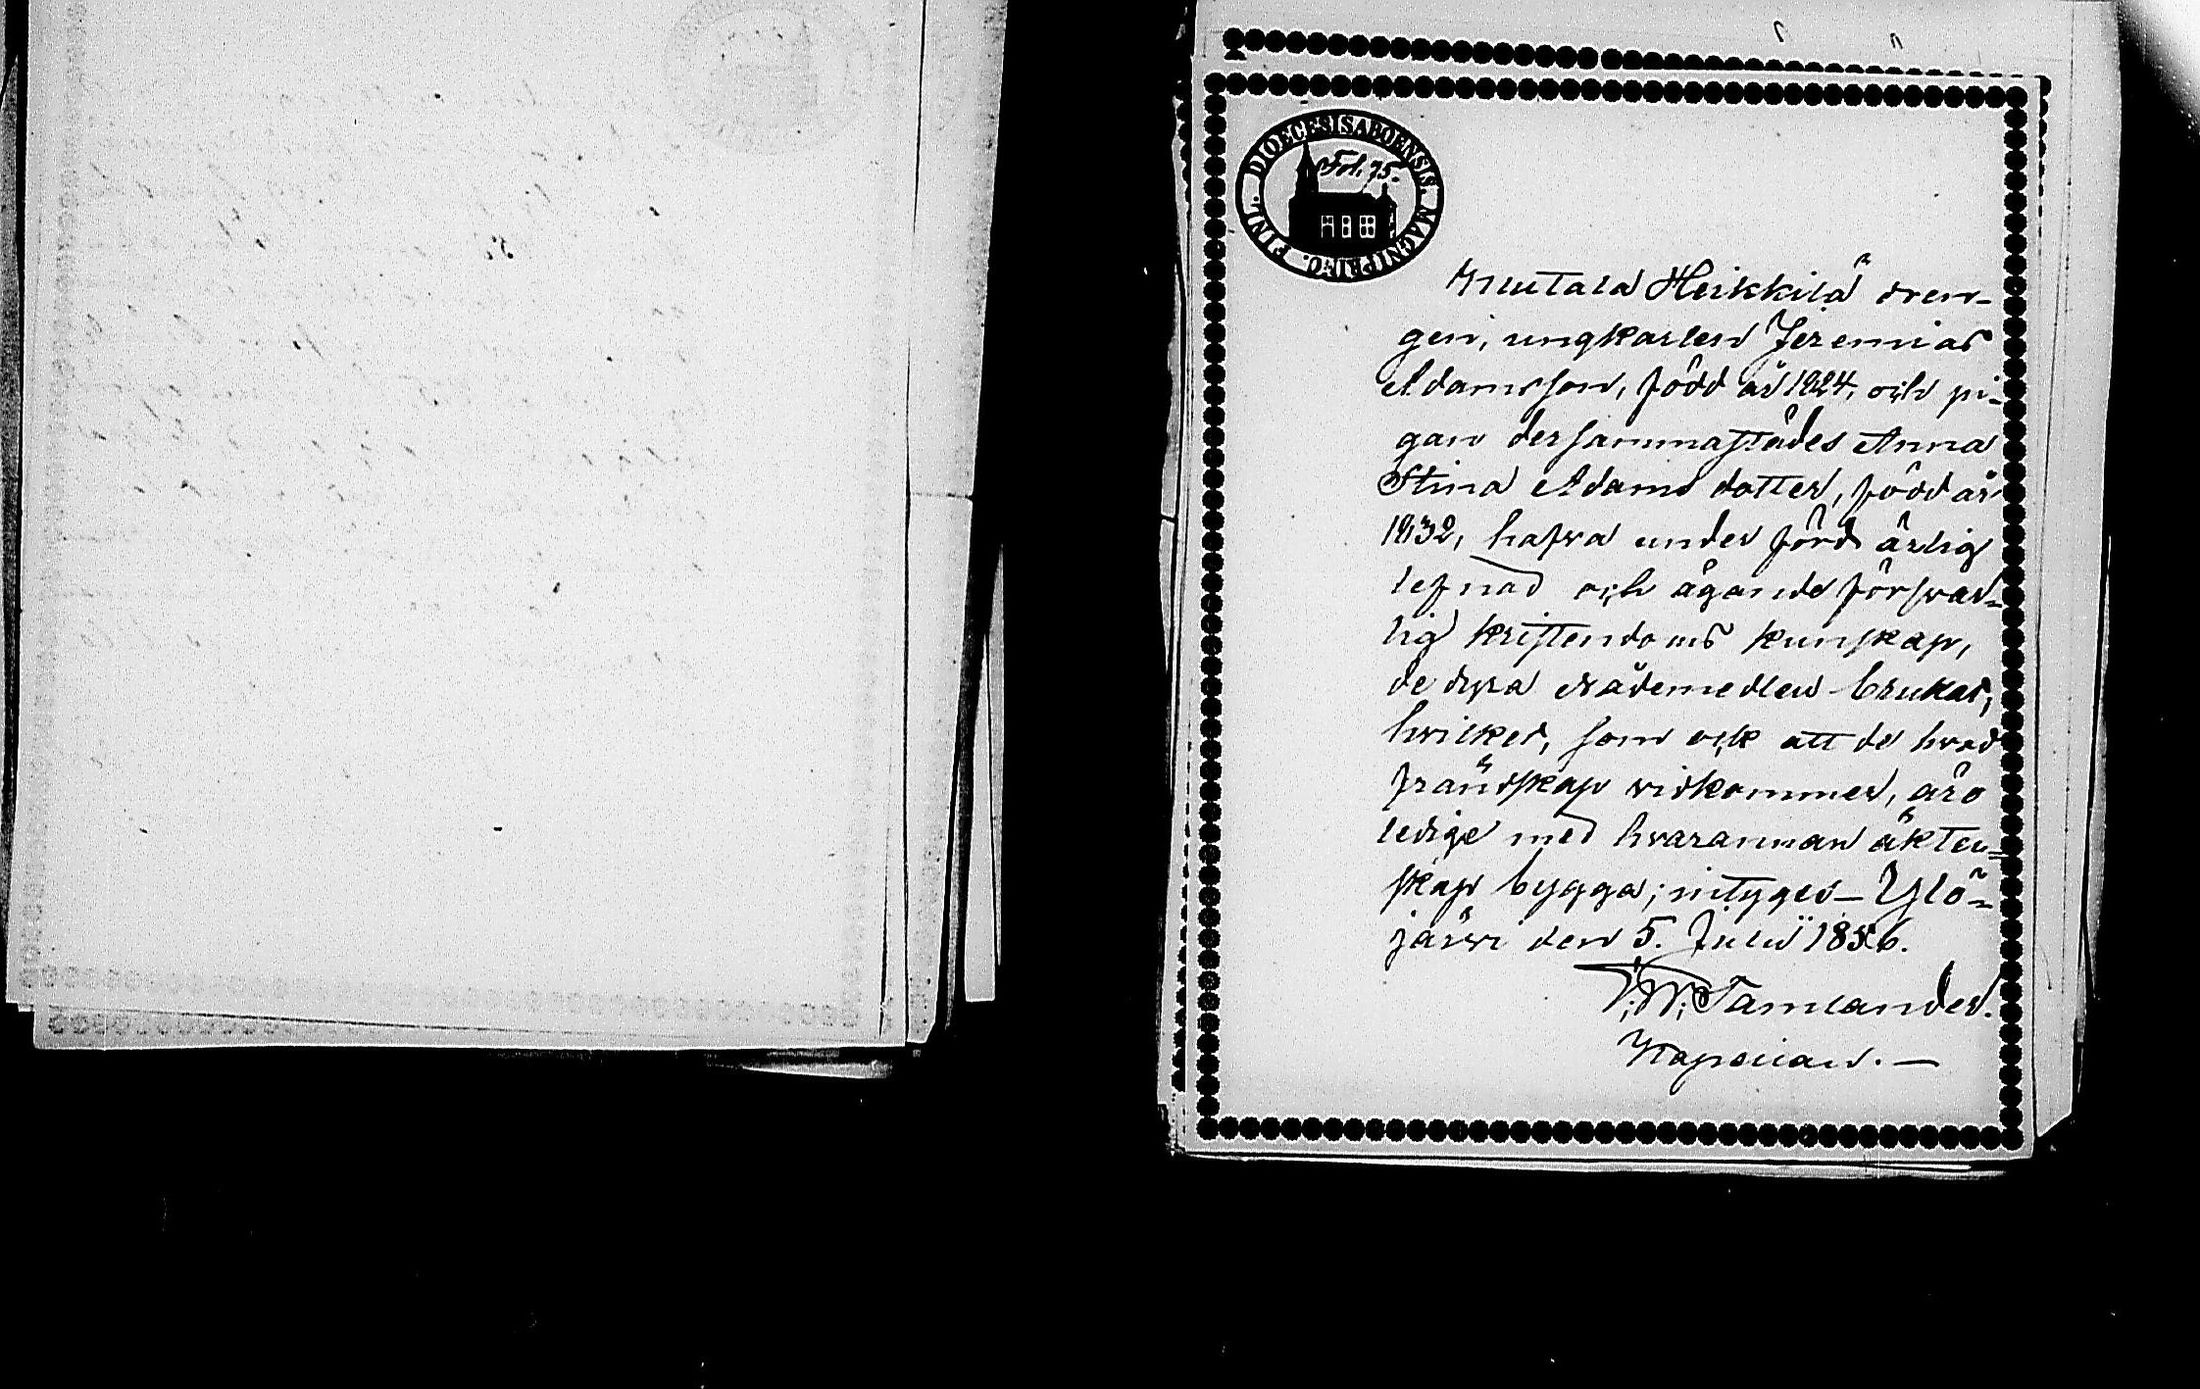 DIOECESIS ABOENSIS. MAGNI PRINC. FINL.
Fol. 75.
Mutala Heikkilä dren-
gen, ungkarlen Jeremias
Adamsson, född år 1824, och pi-
gan dersammastädes Anna
Stina Adams dotter, född år
1832, hafva under förd ärlig
lefnad och ägande försvar-
lig kristendoms kunskap,
de dyra nådemedlen brukat,
hvilket, som ock att de hvad
frändskap vidkommer, äro
ledige med hvarannan äkten-
skap bygga; intygas – Ylö-
järvi den 5. Julii 1856.
F. W. Tamlander.
Kapellan. —